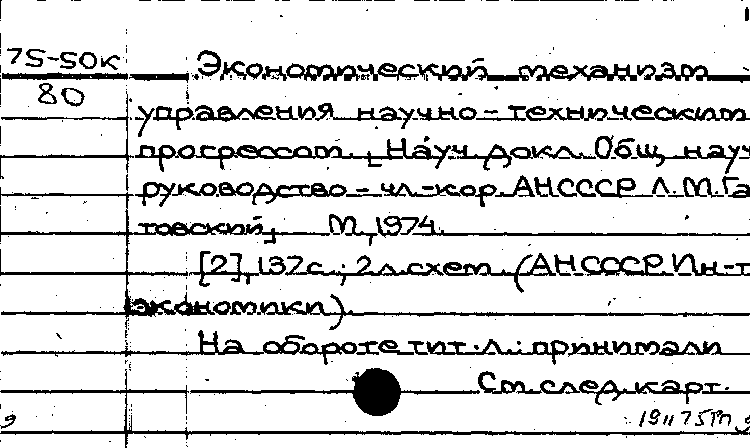 75-50к
80
Экономический механизм
управления научно-техническим
прогрессом. [Науч. докл. Общ. науч.
руководство - чл.-кор. АН СССР Л. М. Га-
товский]. М., 1974.
[2], 137 с.; 2 л. схем. (АН СССР. Ин-т
экономики).
На обороте тит. л.: принимали
См. след. карт.